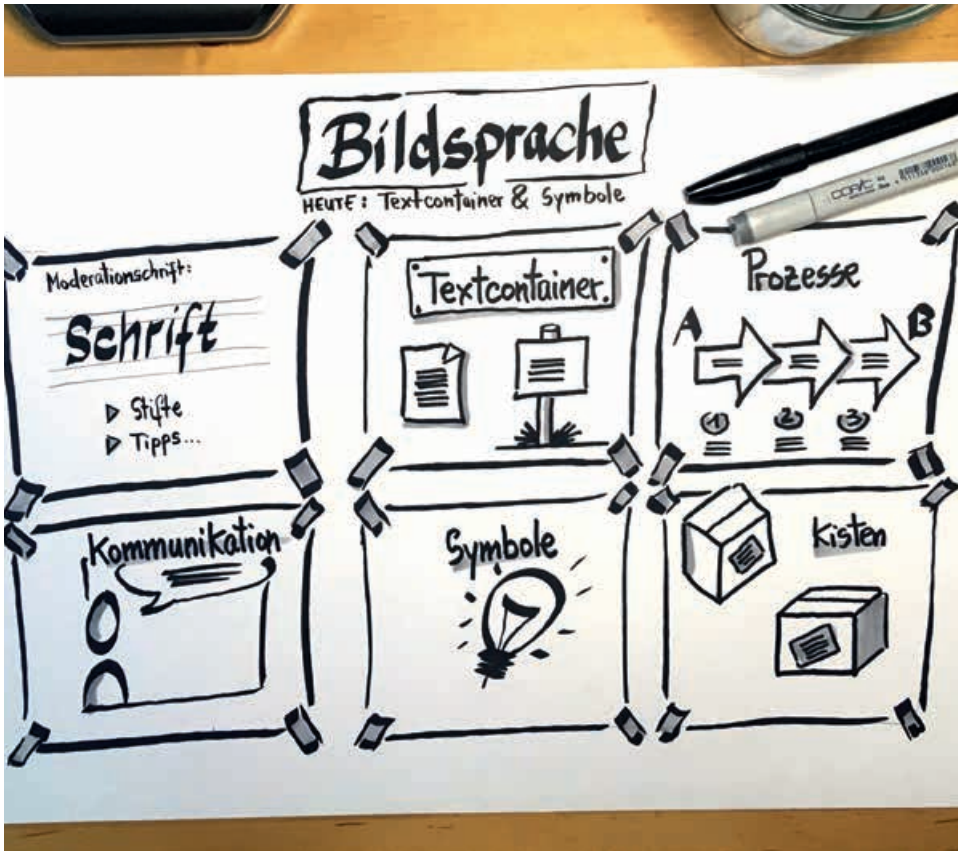 Bildsprache
HEUTE: Textcontainer & Symbole
Moderationschrift:
Schrift
▷ Stifte
▷ Tipps...
Textcontainer
Prozesse
A
B
1 2 3
Kommunikation
Symbole
Kisten
COPIC